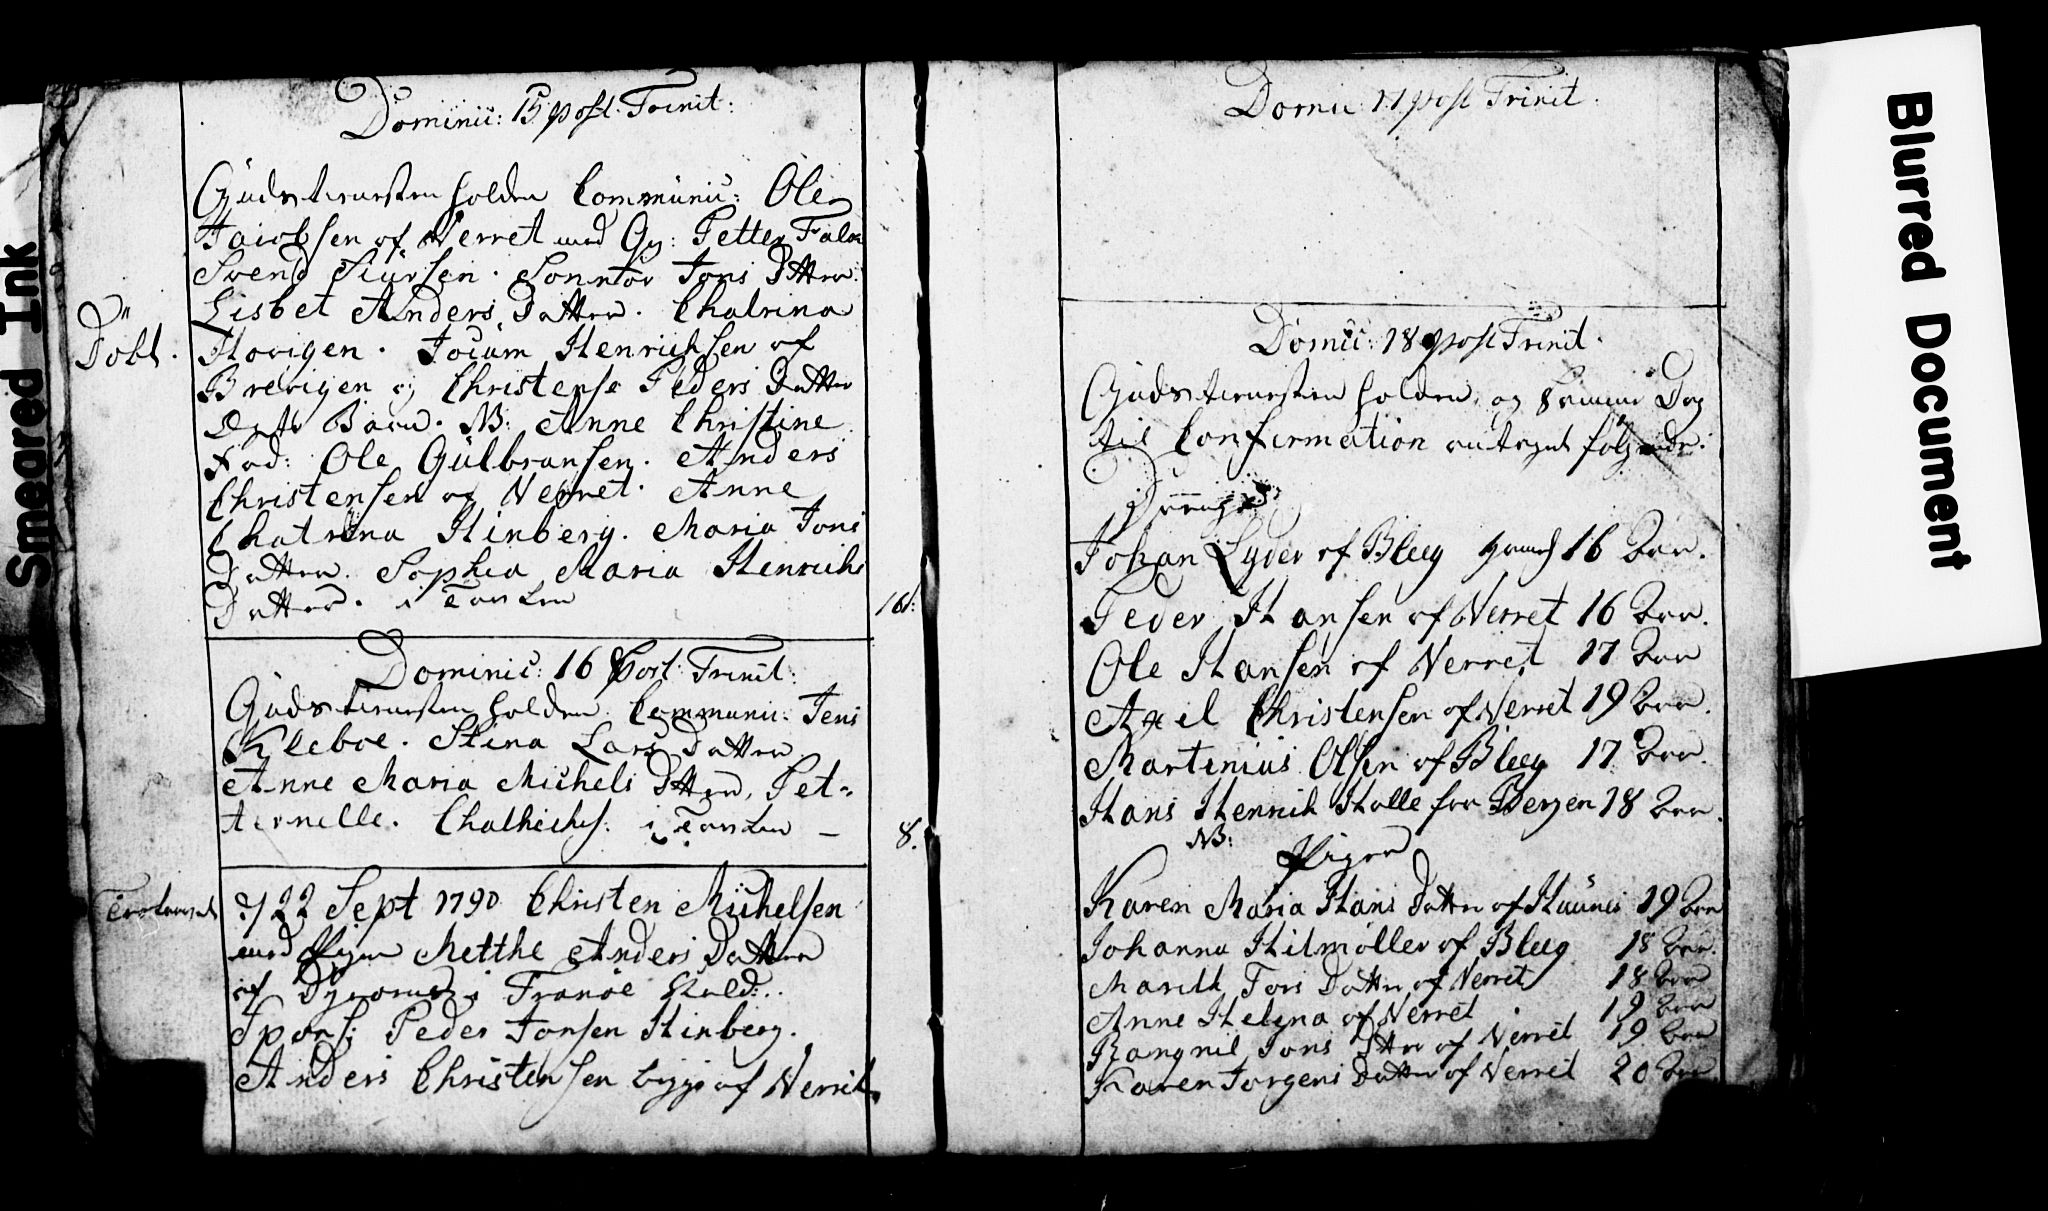 Dominic: 15 post: Trinit:
Gudstienesten holden Communic: Ole
Jacobsen af Verret med Qv: Petter Falch
Svend Siursen. Jons Datter
Lisbet Anders Datter. Chatrina
Døbt. Horigen. Jocum Henrichsen af
Brevigen og Christense Peders Datter
Barn. NB: Anne Christine
Fad: Ole Gulbransen. Anders
Christensen af Verret. Anne
Chatrina Hinberg. Maria Jons
Datter. Sophia Maria Henrichs
Datter. i
Dominic: 16 Post: Trinit:
Gudstienesten holden. Communic: Jens
Kleboe. Stina Lars Datter
Anne Maria Michels Dtter, Pet-
ternelle. i
8.
Trolovet d/ 22 Sept 1790 Christen Michelsen
med Pigen Metthe Anders Datter
af i Tranöe
Spons: Peder Jonsen Hinberg.
Anders Christensen begge af Verret.
Domic 17 post Trinit.
Domic: 18 post Trinit.
Gudstienesten holden, og samme Dag
til Confirmation antaget følgende.
Drenge
Johan Lyder af Bleeg 16 Aar.
Peder Hansen af Verret 16 Aar.
Ole Hansen af Verret 17 Aar
Axel Christensen af Verret 19 Aar.
Martinius Olsen af Bleeg 17 Aar.
Hans Henrik Holle fra Bergen 18 Aar.
NB:
Piger
Karen Maria Hans Datter af 19 Aar
Johanna Hilmøller af Bleeg 18 Aar.
Marith Tors Datter af Verret 18 Aar
Anne Helena af Verret 19 Aar
Rangnil Jons Dtter af Verret 19 Aar
Karen Jorgens Datter af Verret 20 Aar
Smeared Ink
Blurred Document